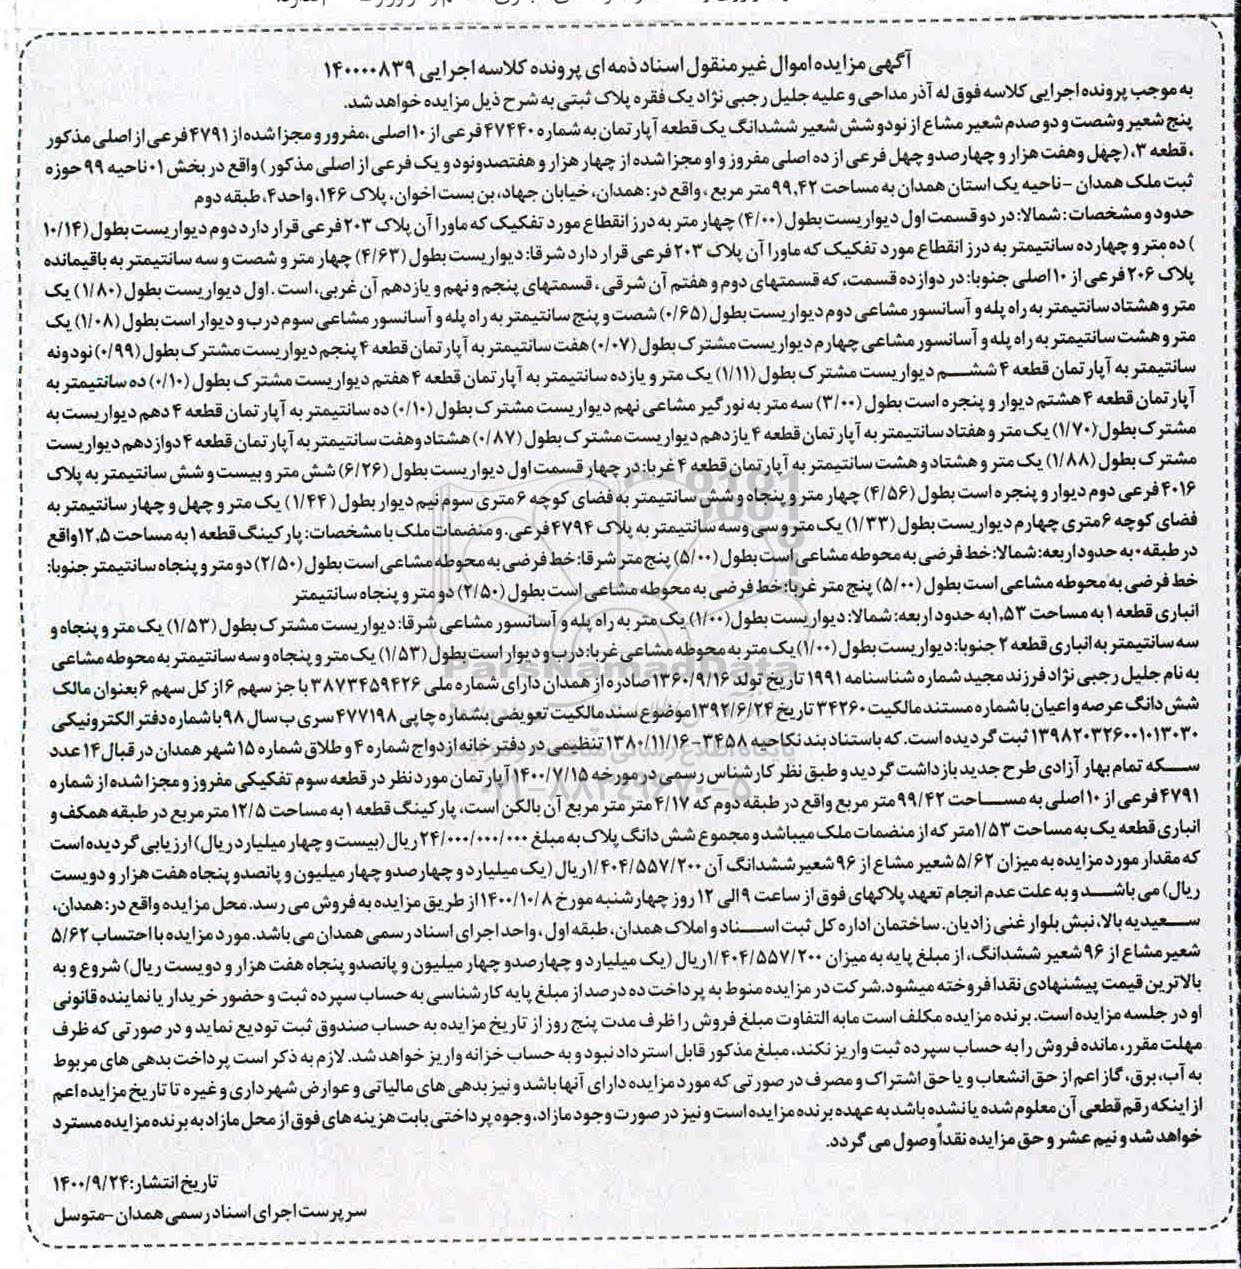 آگهی مزایده اموال غیر منقول اسناد ذمه ای پرونده کلاسه اجرایی ۱۴۰۰۰۰۸۳۹
به موجب پرونده اجرایی کلاسه فوق له آذر مداحی و علیه جلیل رجبی نژاد یک فقره پلاک ثبتی به شرح ذیل مزایده خواهد شد.
پنج شعیر و شصت و دو صدم شعیر مشاع از نود و شش شعیر ششدانگ یک قطعه آپارتمان به شماره ۴۷۴۴۰ فرعی از ۱۰ اصلی ،مفروز و مجزا شده از ۴۷۹۱ فرعی از اصلی مذکور
، قطعه ۳، (چهل و هفت هزار و چهارصد و چهل فرعی از ده اصلی مفروز و او مجزا شده از چهار هزار و هفتصد و نود و یک فرعی از اصلی مذکور) واقع در بخش ۰۱ ناحیه ۹۹ حوزه
ثبت ملک همدان -ناحیه یک استان همدان به مساحت ۹۹,۴۲ متر مربع ، واقع در: همدان، خیابان جهاد، بن بست اخوان، پلاک ۱۴۶، واحد ۴، طبقه دوم
حدود و مشخصات : شمالا: در دو قسمت اول دیواریست بطول (۴/۰۰) چهار متر به درز انقطاع مورد تفکیک که ماورا آن پلاک ۲۰۳ فرعی قرار دارد دوم دیواریست بطول (۱۰/۱۴
) ده متر و چهارده سانتیمتر به درز انقطاع مورد تفکیک که ماورا آن پلاک ۲۰۳ فرعی قرار دارد شرقا: دیواریست بطول (۴/۶۳) چهار متر و شصت و سه سانتیمتر به باقیمانده
پلاک ۲۰۶ فرعی از ۱۰ اصلی جنوبا: در دوازده قسمت، که قسمتهای دوم و هفتم آن شرقی ، قسمتهای پنجم و نهم و یازدهم آن غربی، است . اول دیواریست بطول (۱/۸۰) یک
متر و هشتاد سانتیمتر به راه پله و آسانسور مشاعی دوم دیواریست بطول (۰/۶۵) شصت و پنج سانتیمتر به راه پله و آسانسور مشاعی سوم درب و دیوار است بطول (۱/۰۸) یک
متر و هشت سانتیمتر به راه پله و آسانسور مشاعی چهارم دیواریست مشترک بطول (۰/۰۷) هفت سانتیمتر به آپارتمان قطعه ۴ پنجم دیواریست مشترک بطول (۰/۹۹) نود و نه
سانتیمتر به آپارتمان قطعه ۴ ششم دیواریست مشترک بطول (۱/۱۱) یک متر و یازده سانتیمتر به آپارتمان قطعه ۴ هفتم دیواریست مشترک بطول (۰/۱۰) ده سانتیمتر به
آپارتمان قطعه ۴ هشتم دیوار و پنجره است بطول (۳/۰۰) سه متر به نورگیر مشاعی نهم دیواریست مشترک بطول (۰/۱۰) ده سانتیمتر به آپارتمان قطعه ۴ دهم دیواریست به
مشترک بطول (۱/۷۰) یک متر و هفتاد سانتیمتر به آپارتمان قطعه ۴ یازدهم دیواریست مشترک بطول (۰/۸۷) هشتاد و هفت سانتیمتر به آپارتمان قطعه ۴ دوازدهم دیواریست
مشترک بطول (۱/۸۸) یک متر و هشتاد و هشت سانتیمتر به آپارتمان قطعه ۴ غربا: در چهار قسمت اول دیواریست بطول (۶/۲۶) شش متر و بیست و شش سانتیمتر به پلاک
۴۰۱۶ فرعی دوم دیوار و پنجره است بطول (۴/۵۶) چهار متر و پنجاه و شش سانتیمتر به فضای کوچه ۶ متری سوم نیم دیوار بطول (۱/۴۴) یک متر و چهل و چهار سانتیمتر به
فضای کوچه ۶ متری چهارم دیواریست بطول (۱/۳۳) یک متر و سی و سه سانتیمتر به پلاک ۴۷۹۴ فرعی. و منضمات ملک با مشخصات: پارکینگ قطعه ۱ به مساحت ۱۲,۵ واقع
در طبقه ۰ به حدود اربعه: شمالا: خط فرضی به محوطه مشاعی است بطول (۵/۰۰) پنج متر شرقا: خط فرضی به محوطه مشاعی است بطول (۲/۵۰) دو متر و پنجاه سانتیمتر جنوبا:
خط فرضی به محوطه مشاعی است بطول (۵/۰۰) پنج متر غربا: خط فرضی به محوطه مشاعی است بطول (۲/۵۰) دو متر و پنجاه سانتیمتر
انباری قطعه ۱ به مساحت ۱,۵۳ به حدود اربعه: شمالا: دیواریست بطول (۱/۰۰) یک متر به راه پله و آسانسور مشاعی شرقا: دیواریست مشترک بطول (۱/۵۳) یک متر و پنجاه و
سه سانتیمتر به انباری قطعه ۲ جنوبا: دیواریست بطول (۱/۰۰) یک متر به محوطه مشاعی غربا: درب و دیوار است بطول (۱/۵۳) یک متر و پنجاه و سه سانتیمتر به محوطه مشاعی
به نام جلیل رجبی نژاد فرزند مجید شماره شناسنامه ۱۹۹۱ تاریخ تولد ۱۳۶۰/۹/۱۶ صادره از همدان دارای شماره ملی ۳۸۷۳۴۵۹۴۲۶ با جز سهم ۶ از کل سهم ۶ بعنوان مالک
شش دانگ عرصه و اعیان با شماره مستند مالکیت ۳۴۲۶۰ تاریخ ۱۳۹۲/۶/۲۴ موضوع سند مالکیت تعویضی بشماره چاپی ۴۷۷۱۹۸ سری ب سال ۹۸ با شماره دفتر الکترونیکی
۱۳۹۸۲۰۳۲۶۰۰۱۰۱۳۰۳۰ ثبت گردیده است. که باستناد بند نکاحیه ۳۴۵۸-۱۳۸۰/۱۱/۱۶ تنظیمی در دفتر خانه ازدواج شماره ۴ و طلاق شماره ۱۵ شهر همدان در قبال ۱۴ عدد
سکه تمام بهار آزادی طرح جدید بازداشت گردید و طبق نظر کارشناس رسمی در مورخه ۱۴۰۰/۷/۱۵ آپارتمان مورد نظر در قطعه سوم تفکیکی مفروز و مجزا شده از شماره
۴۷۹۱ فرعی از ۱۰ اصلی به مساحت ۹۹/۴۲ متر مربع واقع در طبقه دوم که ۴/۱۷ متر متر مربع آن بالکن است، پارکینگ قطعه ۱ به مساحت ۱۲/۵ متر مربع در طبقه همکف و
انباری قطعه یک به مساحت ۱/۵۳ متر که از منضمات ملک میباشد و مجموع شش دانگ پلاک به مبلغ ۲۴/۰۰۰/۰۰۰/۰۰۰ ریال (بیست و چهار میلیارد ریال) ارزیابی گردیده است
که مقدار مورد مزایده به میزان ۵/۶۲ شعیر مشاع از ۹۶ شعیر ششدانگ آن ۱/۴۰۴/۵۵۷/۲۰۰ ریال (یک میلیارد و چهارصد و چهار میلیون و پانصد و پنجاه هفت هزار و دویست
ریال) می باشد و به علت عدم انجام تعهد پلاکهای فوق از ساعت ۹ الی ۱۲ روز چهارشنبه مورخ ۱۴۰۰/۱۰/۸ از طریق مزایده به فروش می رسد. محل مزایده واقع در: همدان،
سعیدیه بالا، نبش بلوار غنی زادیان. ساختمان اداره کل ثبت اسناد و املاک همدان، طبقه اول ، واحد اجرای اسناد رسمی همدان می باشد. مورد مزایده با احتساب ۵/۶۲
شعیر مشاع از ۹۶ شعیر ششدانگ، از مبلغ پایه به میزان ۱/۴۰۴/۵۵۷/۲۰۰ ریال (یک میلیارد و چهارصد و چهار میلیون و پانصد و پنجاه هفت هزار و دویست ریال) شروع و به
بالاترین قیمت پیشنهادی نقدا فروخته میشود.شرکت در مزایده منوط به پرداخت ده درصد از مبلغ پایه کارشناسی به حساب سپرده ثبت و حضور خریدار یا نماینده قانونی
او در جلسه مزایده است. برنده مزایده مکلف است مابه التفاوت مبلغ فروش را ظرف مدت پنج روز از تاریخ مزایده به حساب صندوق ثبت تودیع نماید و در صورتی که ظرف
مهلت مقرر، مانده فروش را به حساب سپرده ثبت واریز نکند، مبلغ مذکور قابل استرداد نبود و به حساب خزانه واریز خواهد شد. لازم به ذکر است پرداخت بدهی های مربوط
به آب، برق، گاز اعم از حق انشعاب و یا حق اشتراک و مصرف در صورتی که مورد مزایده دارای آنها باشد و نیز بدهی های مالیاتی و عوارض شهرداری و غیره تا تاریخ مزایده اعم
از اینکه رقم قطعی آن معلوم شده یا نشده باشد به عهده برنده مزایده است و نیز در صورت وجود مازاد، وجوه پرداختی بابت هزینه های فوق از محل مازاد به برنده مزایده مسترد
خواهد شد و نیم عشر و حق مزایده نقداً وصول می گردد.
تاریخ انتشار: ۱۴۰۰/۹/۲۴
سرپرست اجرای اسناد رسمی همدان -متوسل
ParsNamadData